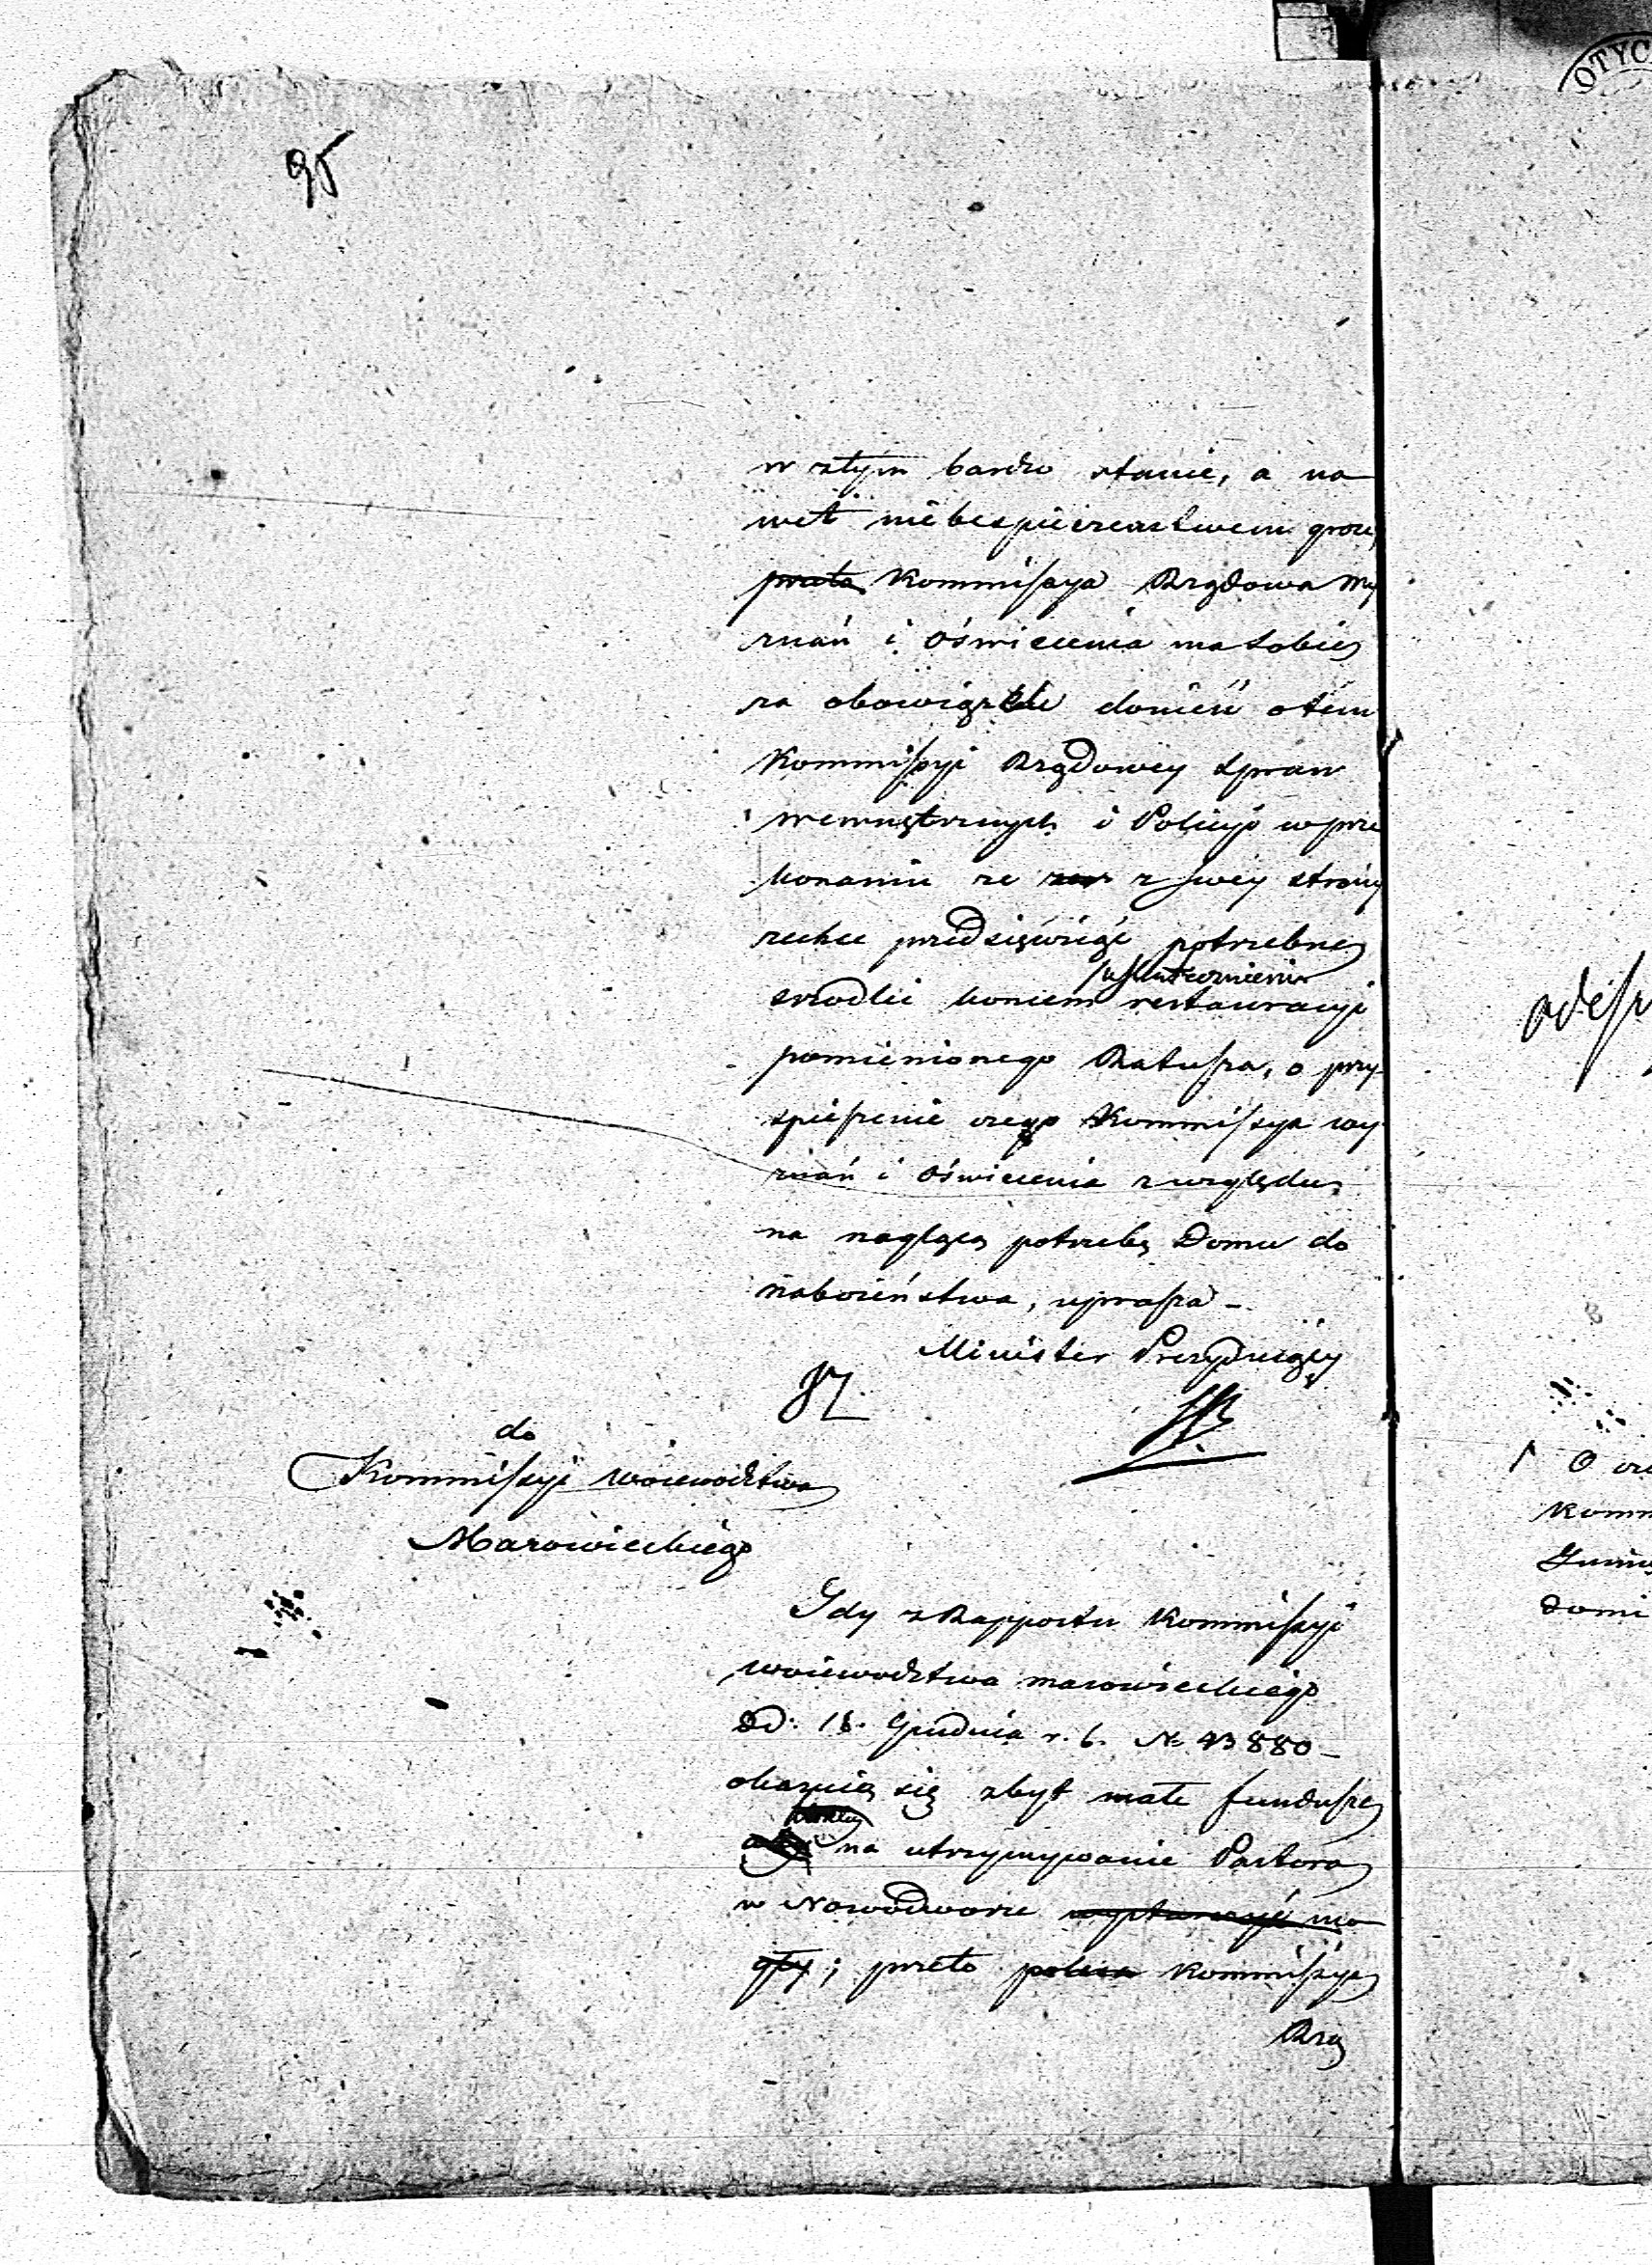 95
w złym bardzo stanie, a na
wet niebespieczenstwem grozi,
przeto Kommissya Rządowa Wy
znań i Oświecenia ma sobie
za obowiązek donieść o tem
Kommissyi Rządowey Spraw
wewnętrznych i Policyi w prze
konaniu ze z swey strony
zechce przedsięwziąść potrzebne
srodki koncem uskutecznienia restauracyi
pomienionego Ratusza, o przy-
spieszenie czego Kommissya wy
znań i Oświecenia z względu
na naglącą potrzebę Domu do
nabożeństwa, uprasza -
Minister Prezyduiący
do
Kommissyi woiewodztwa
Mazowieckiego
Gdy z Rapportu Kommissyi
woiewodztwa mazowieckiego
Dd: 18. Grudnia r. b. No 43880 -
okazuią się zbyt małe fundusze
na utrzymywanie Pastora
w Nowodworze wystarczyć mo
gły; przeto poleca Kommissya
Rzą
OTYC
O
Komm